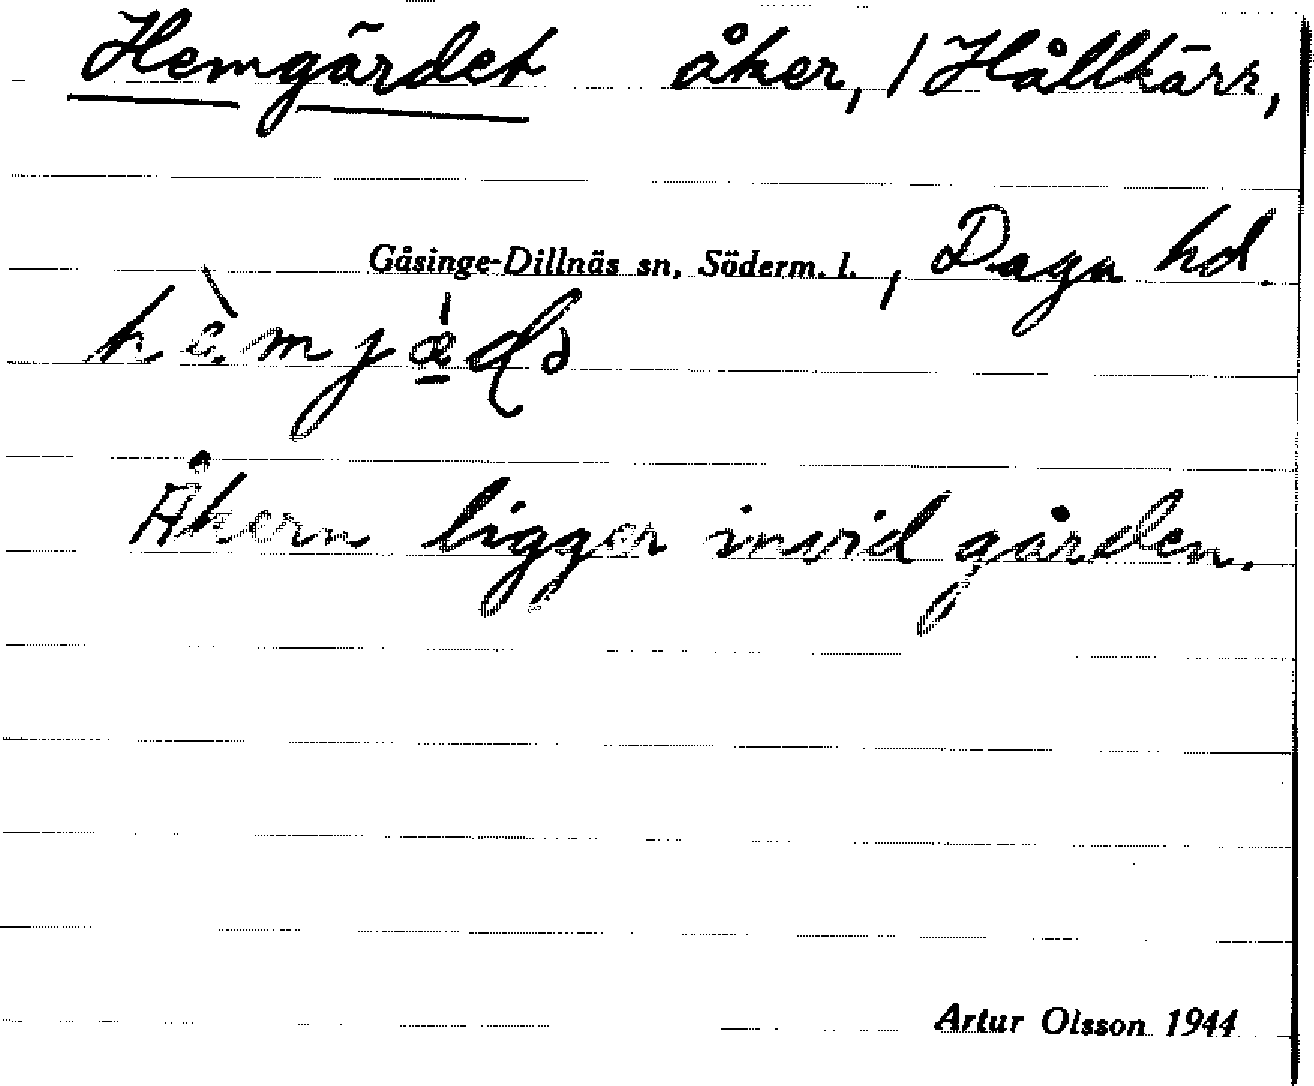 Hemgärdet åker, / Hållkärr,
Gåsinge-Dillnäs sn, Söderm. l., Daga hd.
Åkern ligger invid gården.
Artur Olsson 1944